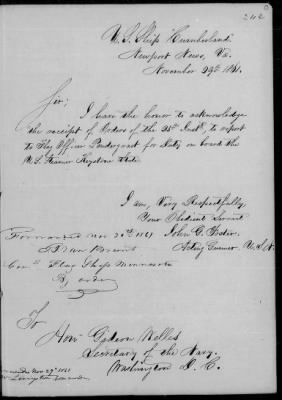 242
U. S. Ship "Cumberland"
Newport News, Va.
November 29th 1861.
Sir;
I have the honor to acknowledge
the receipt of Orders of the 25th Inst, to report
to Flag Officer Pendergrast for Duty on board the
U. S. Steamer Keystone State
I am, Very Respectfully,
Your Obedient Servant
Forwarded Nov 30th 1861
John G. Foster
Acting Gunner U.S.N.
Flag Ship Minnesota
By order
To
Hon Gideon Welles
Secretary of the Navy.
Washington D. C.
Nov 29th 1861
Livingston Commander